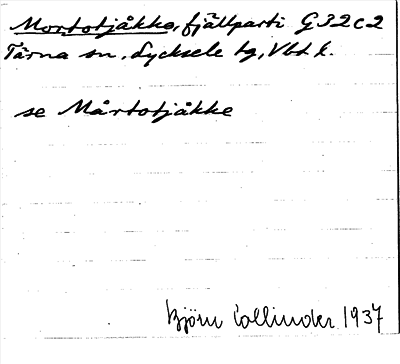 Mortotjåkke, fjällparti G32c2
Tärna sn, Lycksele tg, Vbt l.
se Mårtotjåkke
Björn Collinder 1937